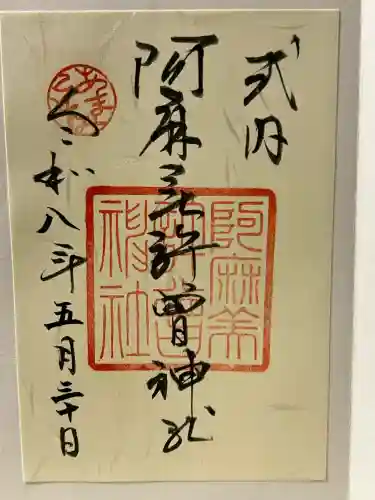 式内
阿麻美許曽神社
令和八年五月三十日
阿麻美
許曽
神社